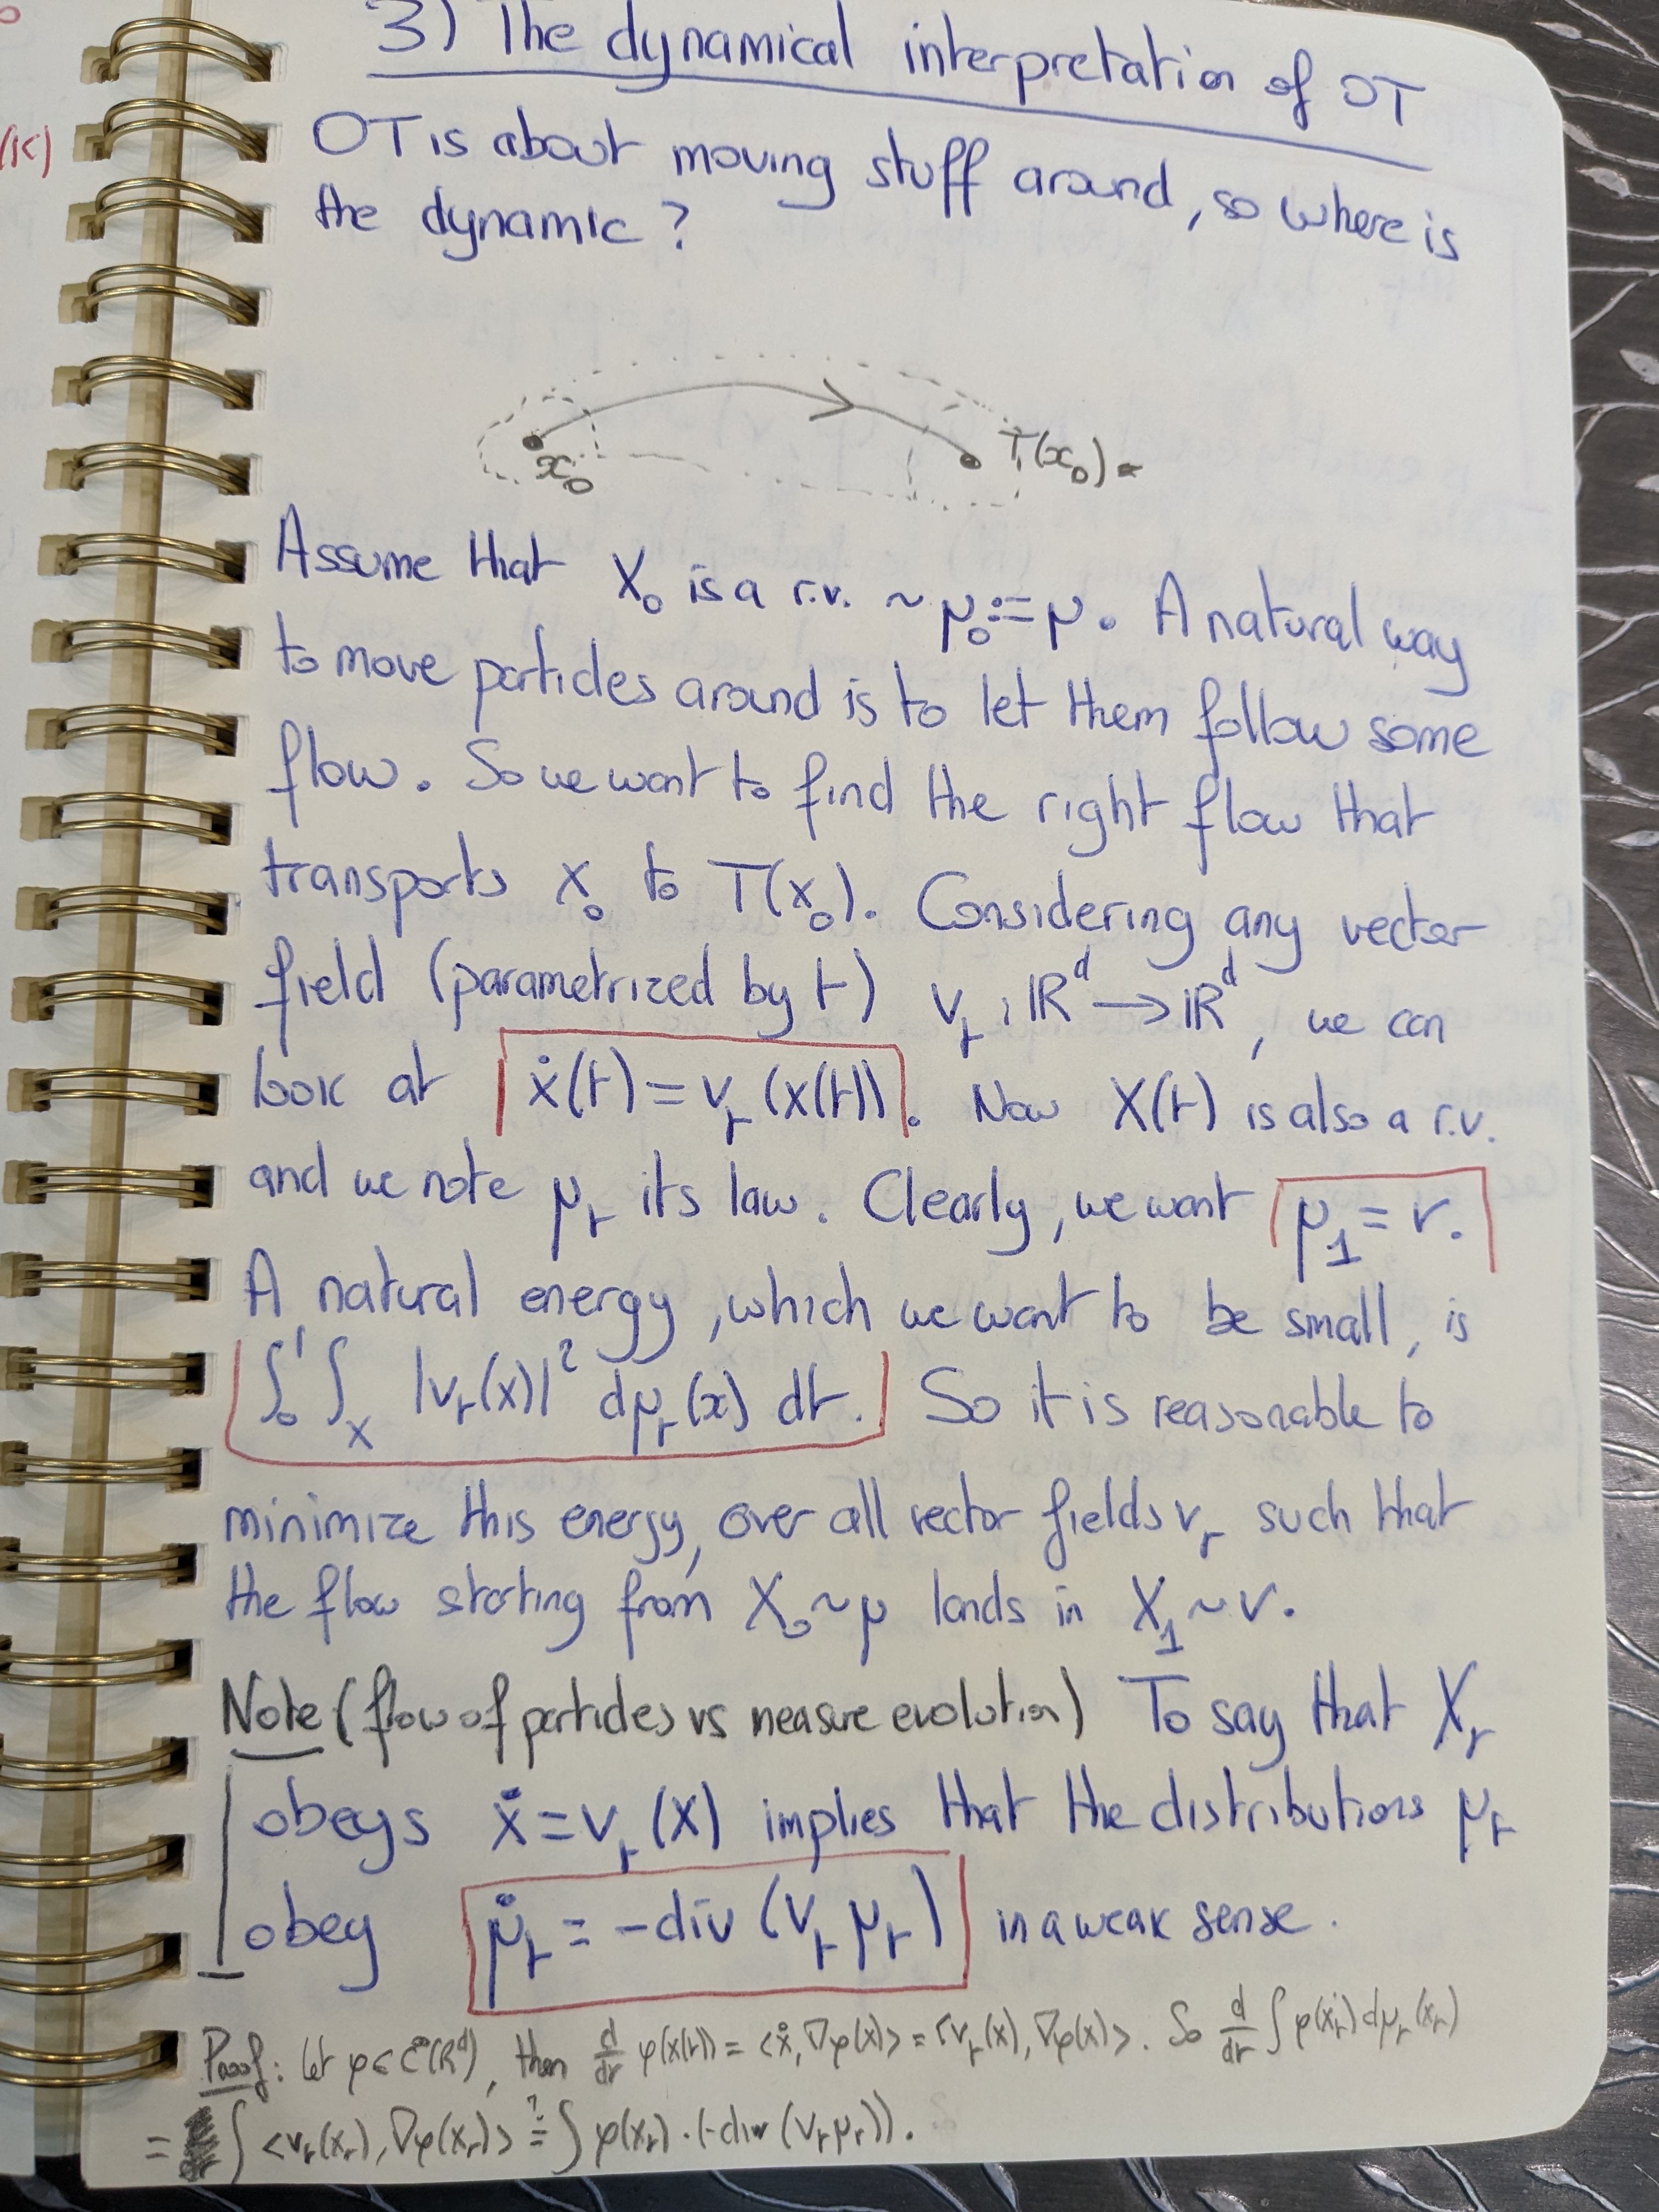 3) The dynamical interpretation of OT
OT is about moving stuff around, so where is
the dynamic ?
x₀ T(x₀).
Assume that X₀ is a r.v. ~ μ₀ := μ. A natural way
to move particles around is to let them follow some
flow. So we want to find the right flow that
transports x₀ to T(x₀). Considering any vector
field (parametrized by t) vₜ : ℝᵈ → ℝᵈ, we can
look at ẋ(t) = vₜ(x(t)). Now X(t) is also a r.v.
and we note μₜ its law. Clearly, we want μ₁ = ν.
A natural energy, which we want to be small, is
∫₀¹ ∫_X |vₜ(x)|² dμₜ(x) dt. So it is reasonable to
minimize this energy, over all vector fields vₜ such that
the flow starting from X₀ ~ μ lands in X₁ ~ ν.
Note (flow of particles vs measure evolution) To say that Xₜ
obeys ẋ = vₜ(x) implies that the distributions μₜ
obey μ̇ₜ = -div (vₜ μₜ) in a weak sense.
Proof: let φ ∈ C^∞(ℝᵈ), then d/dt φ(x(t)) = <ẋ, ∇φ(x)> = <vₜ(x), ∇φ(x)>. So d/dt ∫ φ(xₜ) dμₜ(xₜ)
= ∫ <vₜ(xₜ), ∇φ(xₜ)> ≟ ∫ φ(xₜ) · (-div (vₜ μₜ)).
(K)